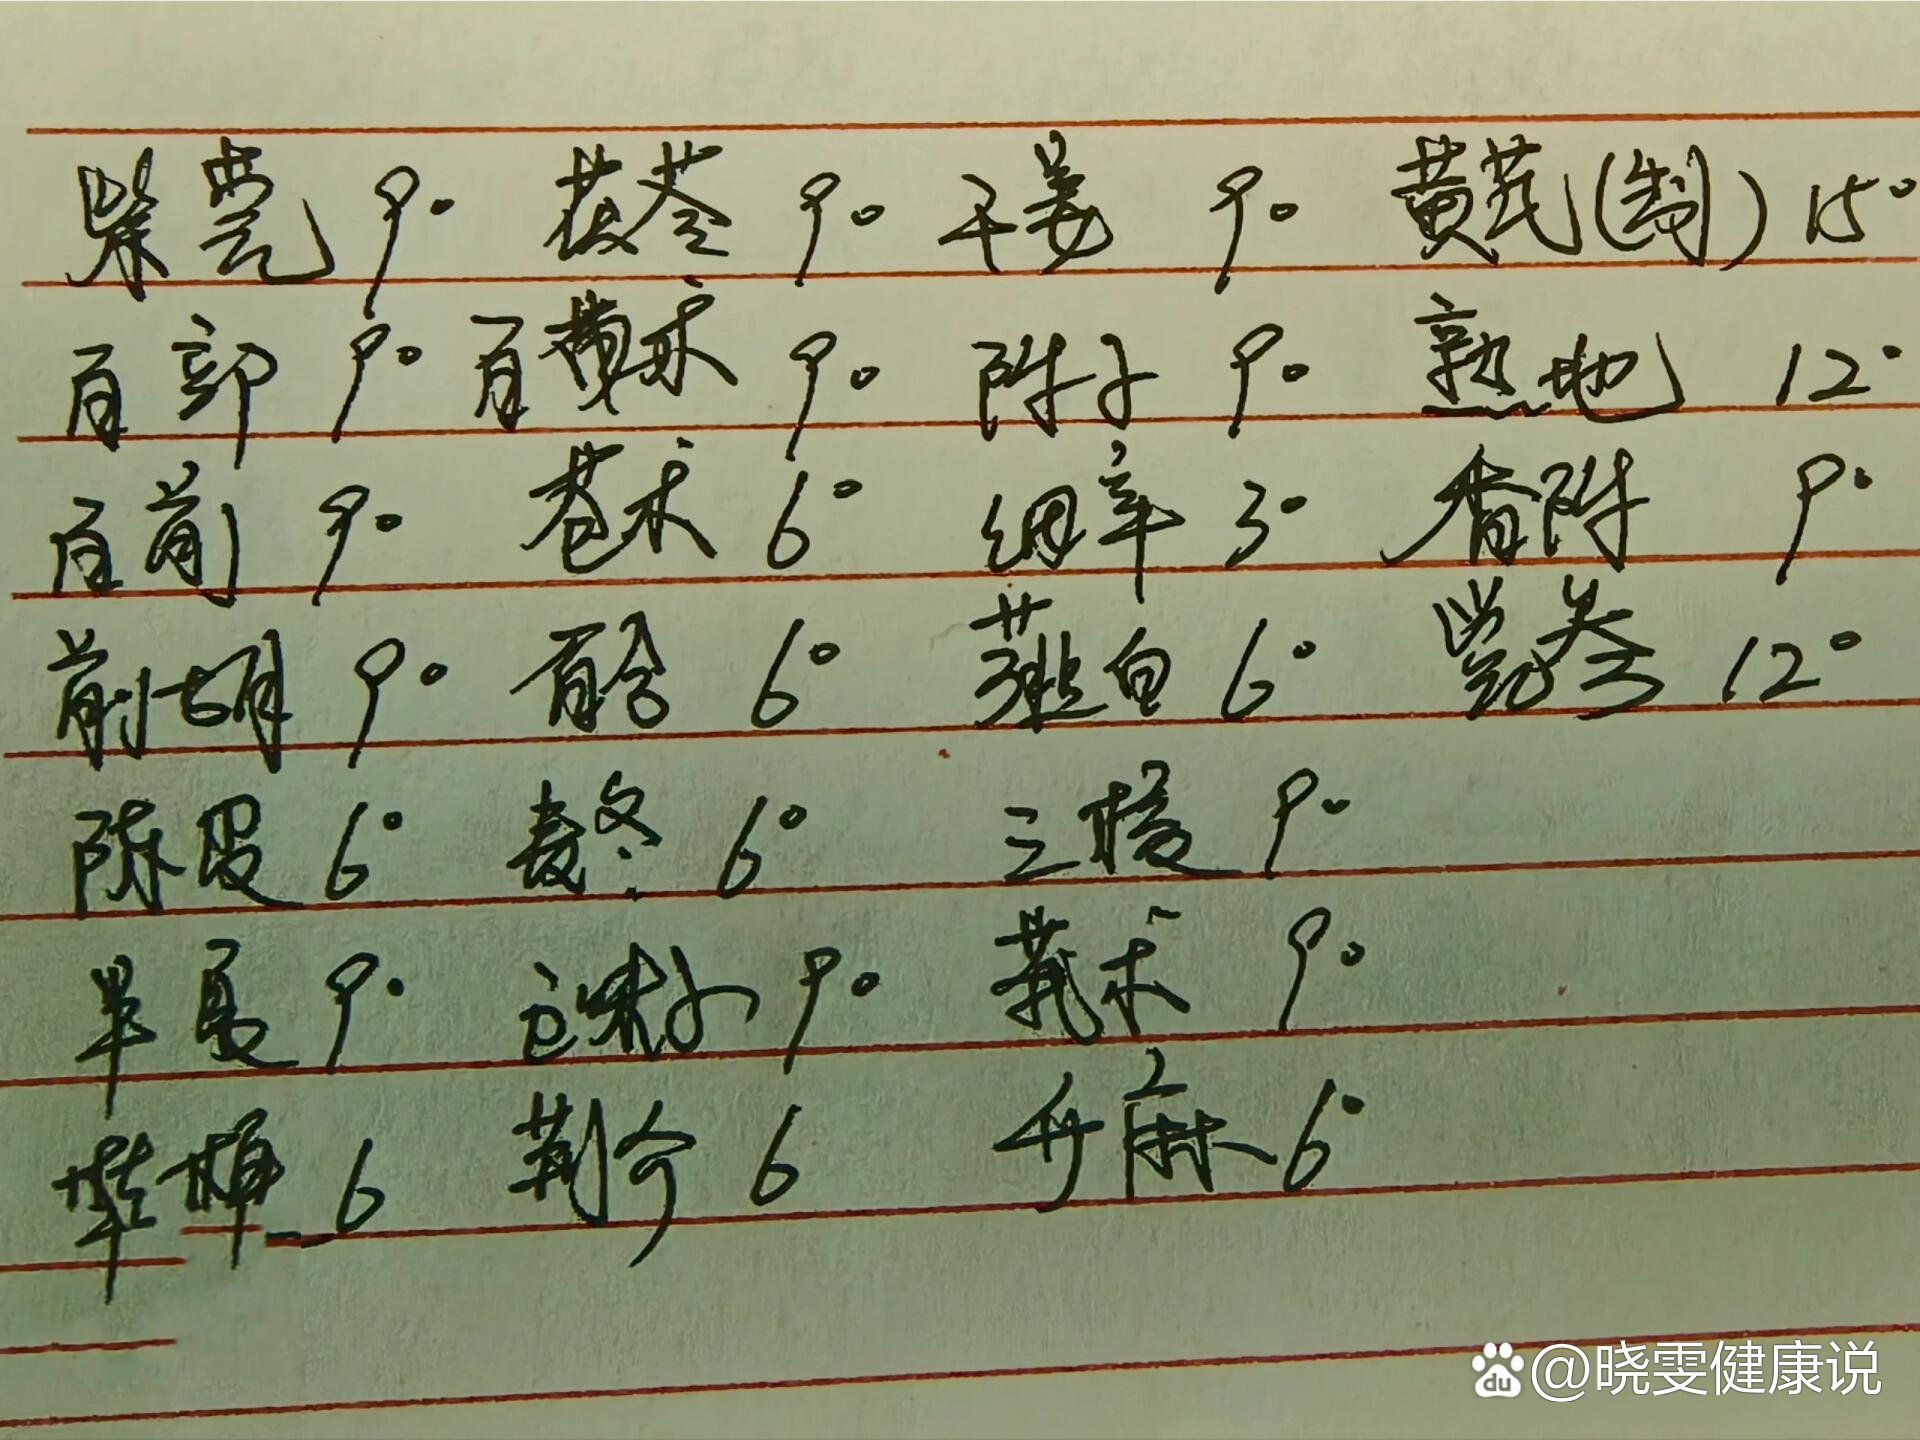 紫菀 9。 茯苓 9。 干姜 9。 黄芪(制) 15°
百部 9。 白术 9。 附子 9。 熟地 12°
白前 9。 苍术 6° 细辛 3° 香附 9°
前胡 9。 百合 6° 薤白 6° 党参 12°
陈皮 6° 麦冬 6° 三棱 9。
半夏 9。 五味子 9。 莪术 9。
桔梗 6 荆芥 6 升麻 6°
du @晓雯健康说